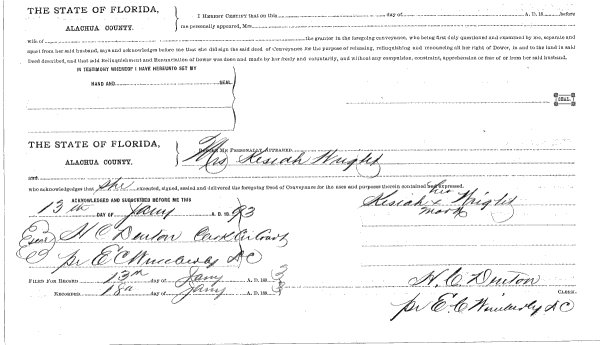 THE STATE OF FLORIDA,
ALACHUA COUNTY.
I HEREBY CERTIFY that on this day of A. D. 18 before
me personally appeared, Mrs.
wife of the grantor in the foregoing conveyance, who being first duly questioned and examined by me, separate and
apart from her said husband, says and acknowledges before me that she did sign the said deed of Conveyance for the purpose of releasing, relinquishing and renouncing all her right of Dower, in and to the land in said
Deed described, and that said Relinquishment and Renunciation of Dower was done and made by her freely and voluntarily, and without any compulsion, constraint, apprehension or fear of or from her said husband.
IN TESTIMONY WHEREOF I HAVE HEREUNTO SET MY
HAND AND SEAL
SEAL.
THE STATE OF FLORIDA,
ALACHUA COUNTY.
BEFORE ME PERSONALLY APPEARED
Mrs Kesiah Wright
and
who acknowledges that she executed, signed, sealed and delivered the foregoing Deed of Conveyance for the uses and purposes therein contained and expressed.
ACKNOWLEDGED AND SUBSCRIBED BEFORE ME THIS
13th DAY OF Jany A. D. 1893
Kesiah x Wright
mark
H. C. Denton Clerk Cir Court
pr E C Wimberly D C
FILED FOR RECORD 13th day of Jany A. D. 1893
RECORDED 18th day of Jany A. D. 1893
H. C. Denton
CLERK.
pr E. C. Wimberly D C